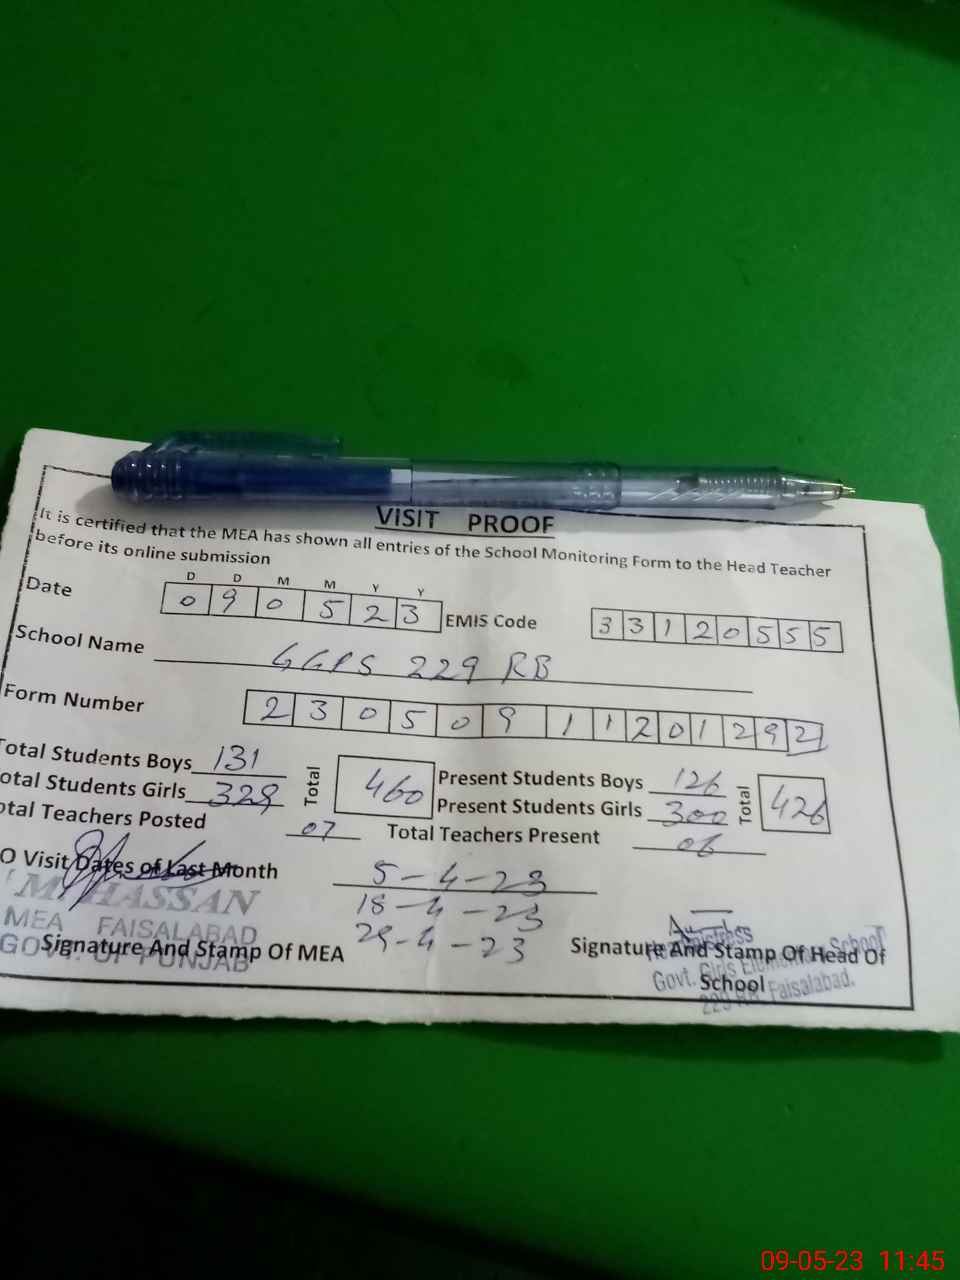 VISIT PROOF
It is certified that the MEA has shown all entries of the School Monitoring Form to the Head Teacher
before its online submission
D D M M Y Y
Date 0 9 0 5 2 3 EMIS Code 3 3 1 2 0 5 5 5
School Name GGPS 229 RB
Form Number 2 3 0 5 0 9 1 1 2 0 1 2 9 2
Total Students Boys 131 Total 460 Present Students Boys 126 Total 426
otal Students Girls 329 Present Students Girls 300
otal Teachers Posted 07 Total Teachers Present 06
O Visit Dates of Last Month 5-4-23
18-4-23
29-4-23
M HASSAN
MEA FAISALABAD
GOVT. OF PUNJAB
Signature And Stamp Of MEA
Signature And Stamp Of Head Of
School
Govt. Girls Elementary School
229 RB Faisalabad.
09-05-23 11:45